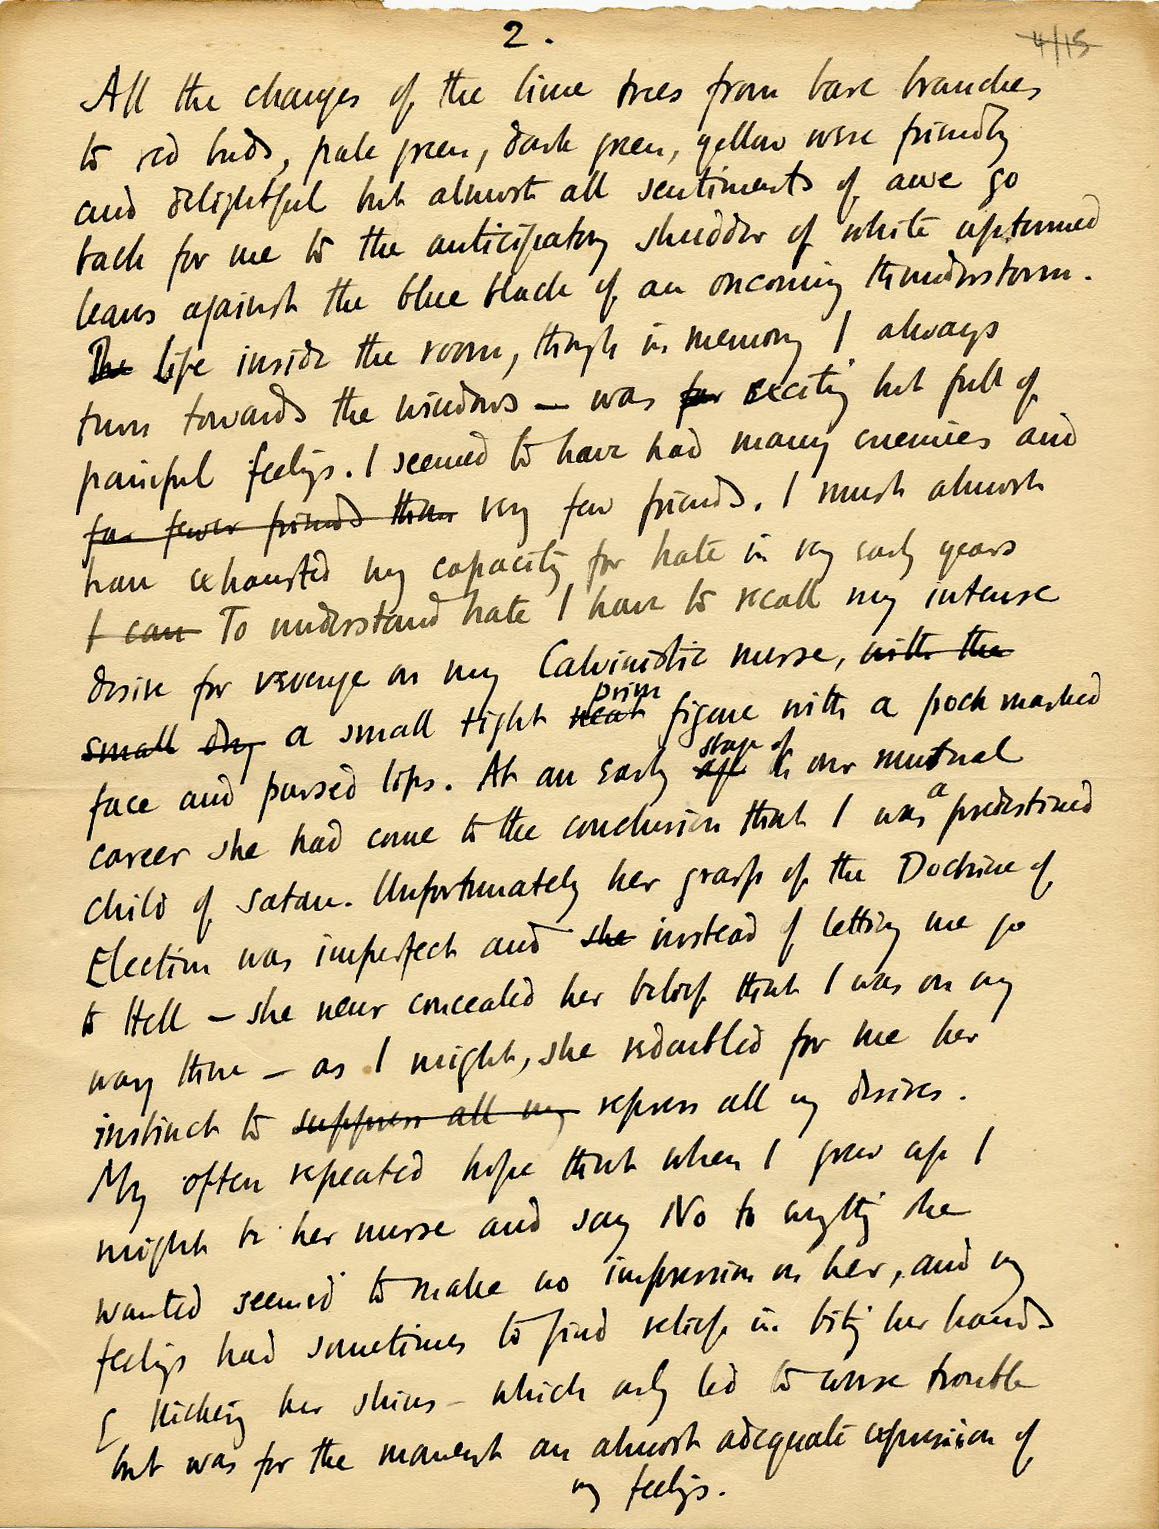 2.
4/15
All the changes of the lime trees from bare branches
to red buds, pale green, dark green, yellow were friendly
and delightful but almost all sentiments of awe go
back for me to the anticipatory shudder of white upturned
leaves against the blue black of an oncoming thunderstorm.
The Life inside the room, though in memory I always
turn towards the windows – was far exciting but full of
painful feelings. I seemed to have had many enemies and
far fewer friends than very few friends. I must almost
have exhausted my capacity for hate in my early years
I can To understand hate I have to recall my intense
desire for revenge on my Calvinistic nurse, with the
prim
small dry a small tight neat figure with a pock marked
stage of
face and pursed lips. At an early age in our mutual
a
career she had come to the conclusion that I was predestined
child of Satan. Unfortunately her grasp of the Doctrine of
Election was imperfect and she instead of letting me go
to Hell – she never concealed her belief that I was on my
way there – as I might, she redoubled for me her
instinct to suppress all my repress all my desires.
My often repeated hope that when I grew up I
might be her nurse and say No to anything she
wanted seemed to make no impression on her, and my
feelings had sometimes to find relief in biting her hands
& kicking her shins – which only led to worse trouble
but was for the moment an almost adequate expression of
my feelings.